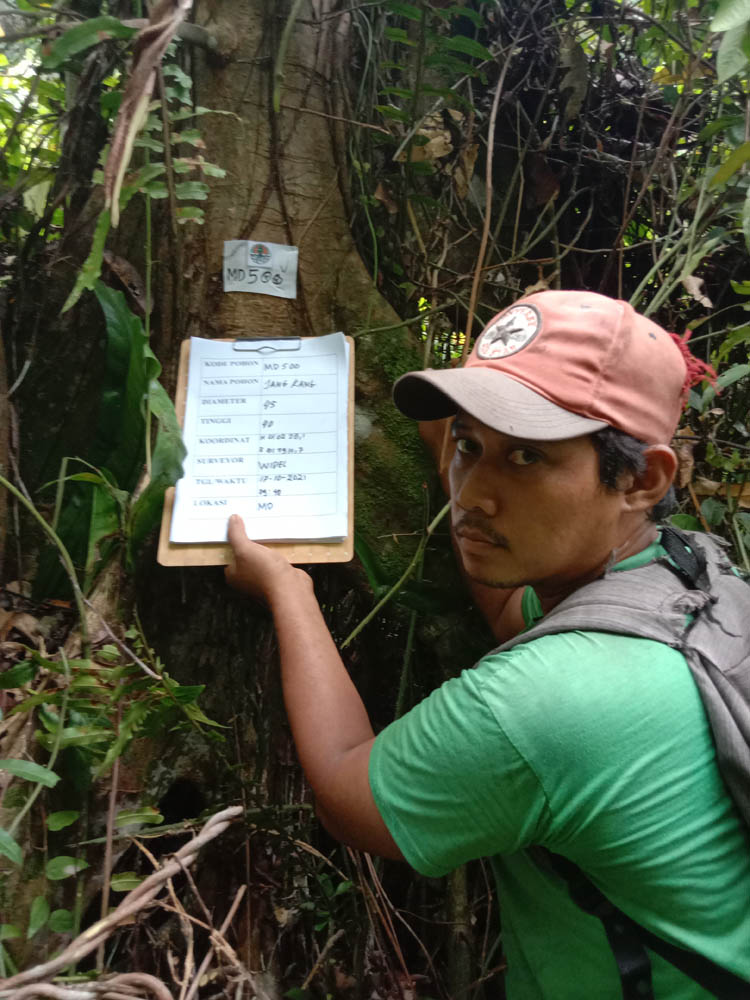 MD500
KODE POHON MD 500
NAMA POHON JANG KANG
DIAMETER 95
TINGGI 40
KOORDINAT
SURVEYOR WIDEL
TGL/WAKTU 17-10-2021
09 40
LOKASI MD